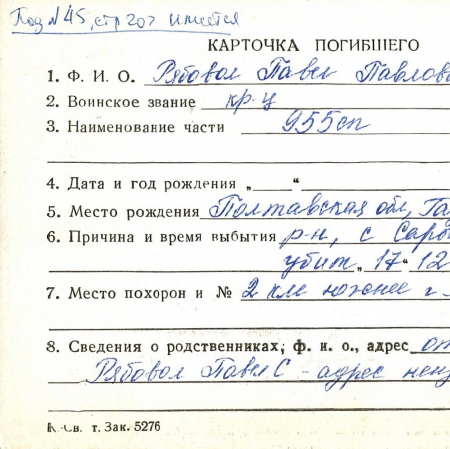 Под № 45, стр 207 имеется
КАРТОЧКА ПОГИБШЕГО
1. Ф. И. О. Рябовол Павел Павлови
2. Воинское звание кр-ц
3. Наименование части 955сп
4. Дата и год рождения „ “
5. Место рождения Полтавская обл, Га
6. Причина и время выбытия р-н, с Саро
убит „17“ 12
7. Место похорон и № 2 км южнее г.
8. Сведения о родственниках; ф. и. о., адрес от
Рябовол Павел С - адрес неиз
т. Зак. 5276